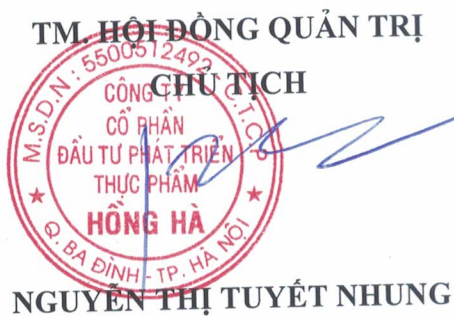 TM. HỘI ĐỒNG QUẢN TRỊ
CHỦ TỊCH
M.S.D.N: 5500512492 - C.T.C.P
CÔNG TY
CỔ PHẦN
ĐẦU TƯ PHÁT TRIỂN
THỰC PHẨM
HỒNG HÀ
Q. BA ĐÌNH - TP. HÀ NỘI
NGUYỄN THỊ TUYẾT NHUNG